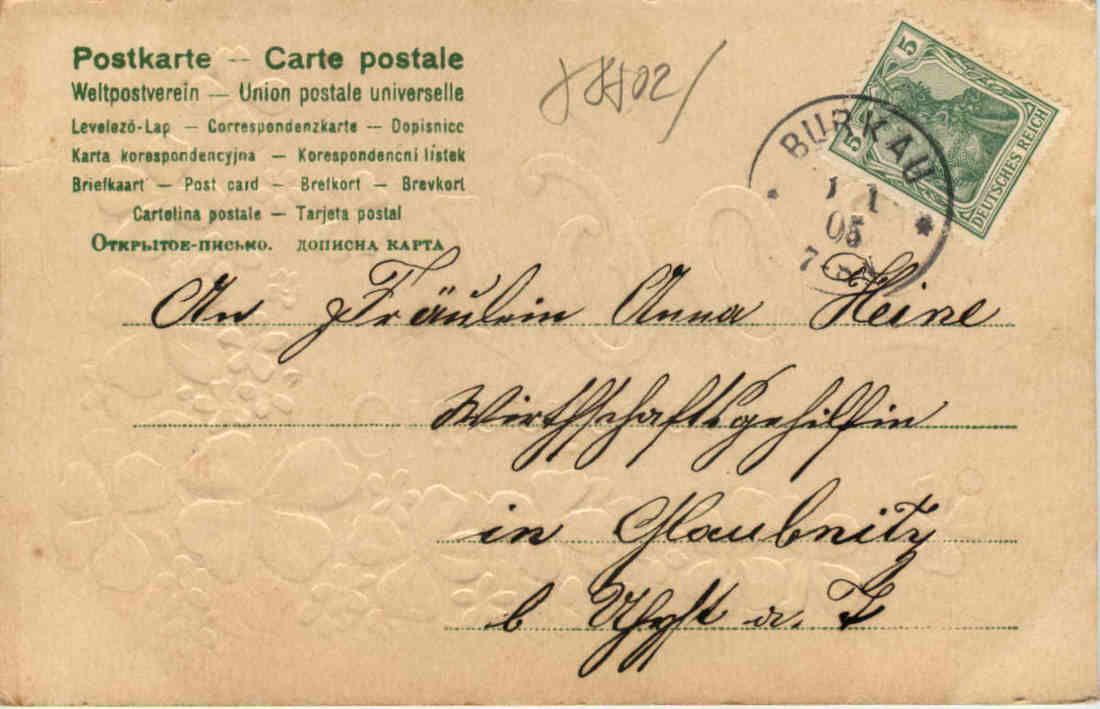 Postkarte — Carte postale
Weltpostverein — Union postale universelle
Levelező-Lap — Correspondenzkarte — Dopisnice
Karta korespondencyjna — Korespondencní lístek
Briefkaart — Post card — Brefkort — Brevkort
Cartolina postale — Tarjeta postal
Открытое-письмо. дописна карта
5
5
DEUTSCHES REICH
BURKAU
1 1
05
An Fräulein Anna Heine
Wirthschaftsgehilfin
in Glaubnitz
b Uhyst a. T